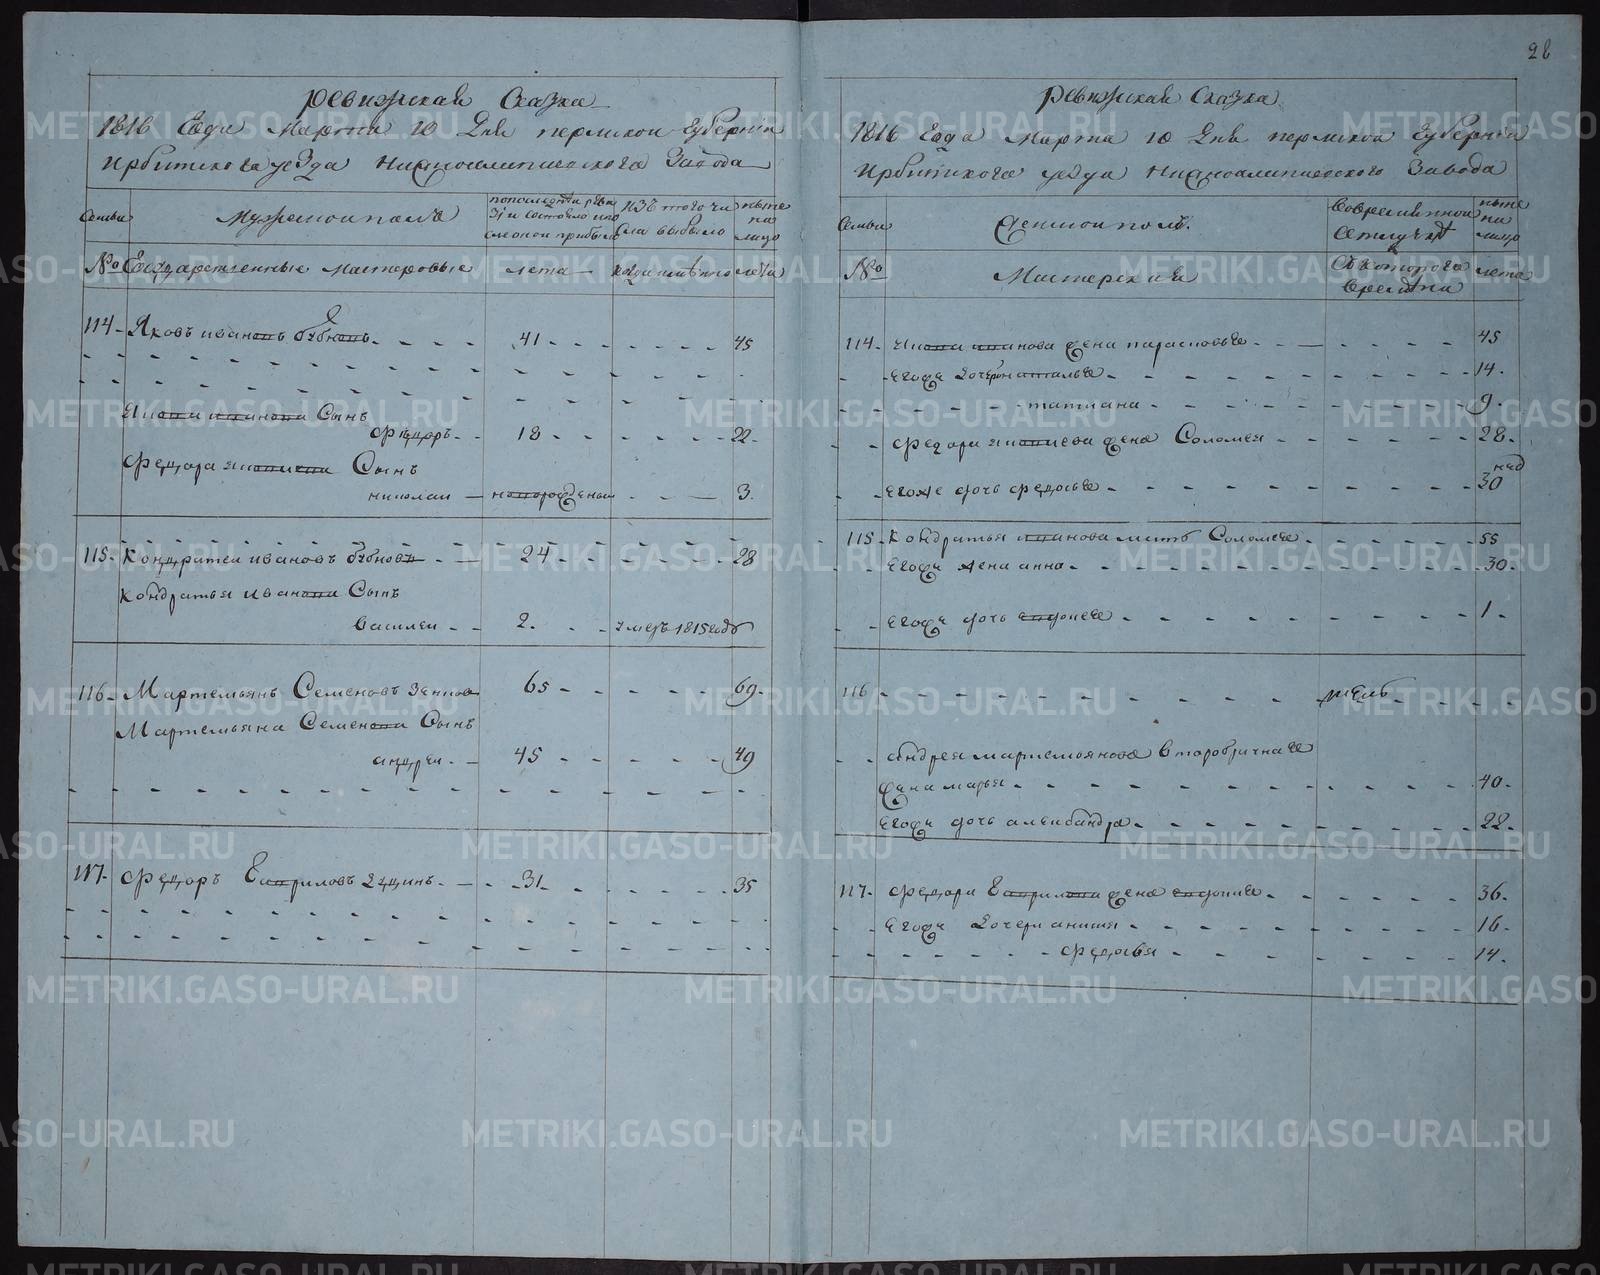 28
Ревижская Сказка
1816 Года Марта 10 Дня пермской Губернии
Ирбитского уезда Нижноалапаевского Завода
Семьи
Мужеской полъ
попоследней ревизіи состояло и после оной прибыло
Изъ того числа выбыло
ныне на лицо
№
Государственные мастеровые
лета
когда имянно
лета
114 Яковъ ивановъ бубновъ 41 45
Якова иванова Сынъ
Федоръ 18 22
Федора яковлева Сынъ
николай новорожденый 3
115 Кондратей ивановъ бубновъ 24 28
Кондратья иванова Сынъ
василей 2 умеръ 1815 году
116 Мартемьянъ Семеновъ 65 69
Мартемьяна Семенова Сынъ
андрей 45 49
117 Федоръ Гавриловъ 31 35
Ревижская Сказка
1816 Года Марта 10 Дня пермской Губернии
Ирбитскога уезда Нижноалапаевского Завода
Семьи
Женской полъ
Вовременной отлучке
ныне на лицо
№
Мастерския
Съ которого времени
лета
114 Якова иванова жена парасковья 45
Егоже дочери наталья 14
татиана 9
Федора яковлева жена Соломея 28
нед
Егоже дочь федосья 30
115 Кондратья иванова мать Соломея 55
Егоже жена анна 30
Егоже дочь евдокея 1
116
андрея мартемьянова второбрачная
жена марья 40
Егоже дочь александра 22
117 Федора Гаврилова жена евдокия 36
Егоже дочери анисия 16
Федосья 14
METRIKI.GASO-URAL.RU